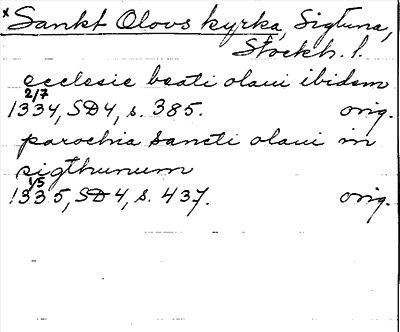 x Sankt Olovs kyrka, Sigtuna,
Stockh. l.
ecclesie beati olaui ibidem
2/7
1334, SD4, s. 385. orig.
parochia sancti olaui in
sigthunum
1/5
1335, SD4, s. 437. orig.